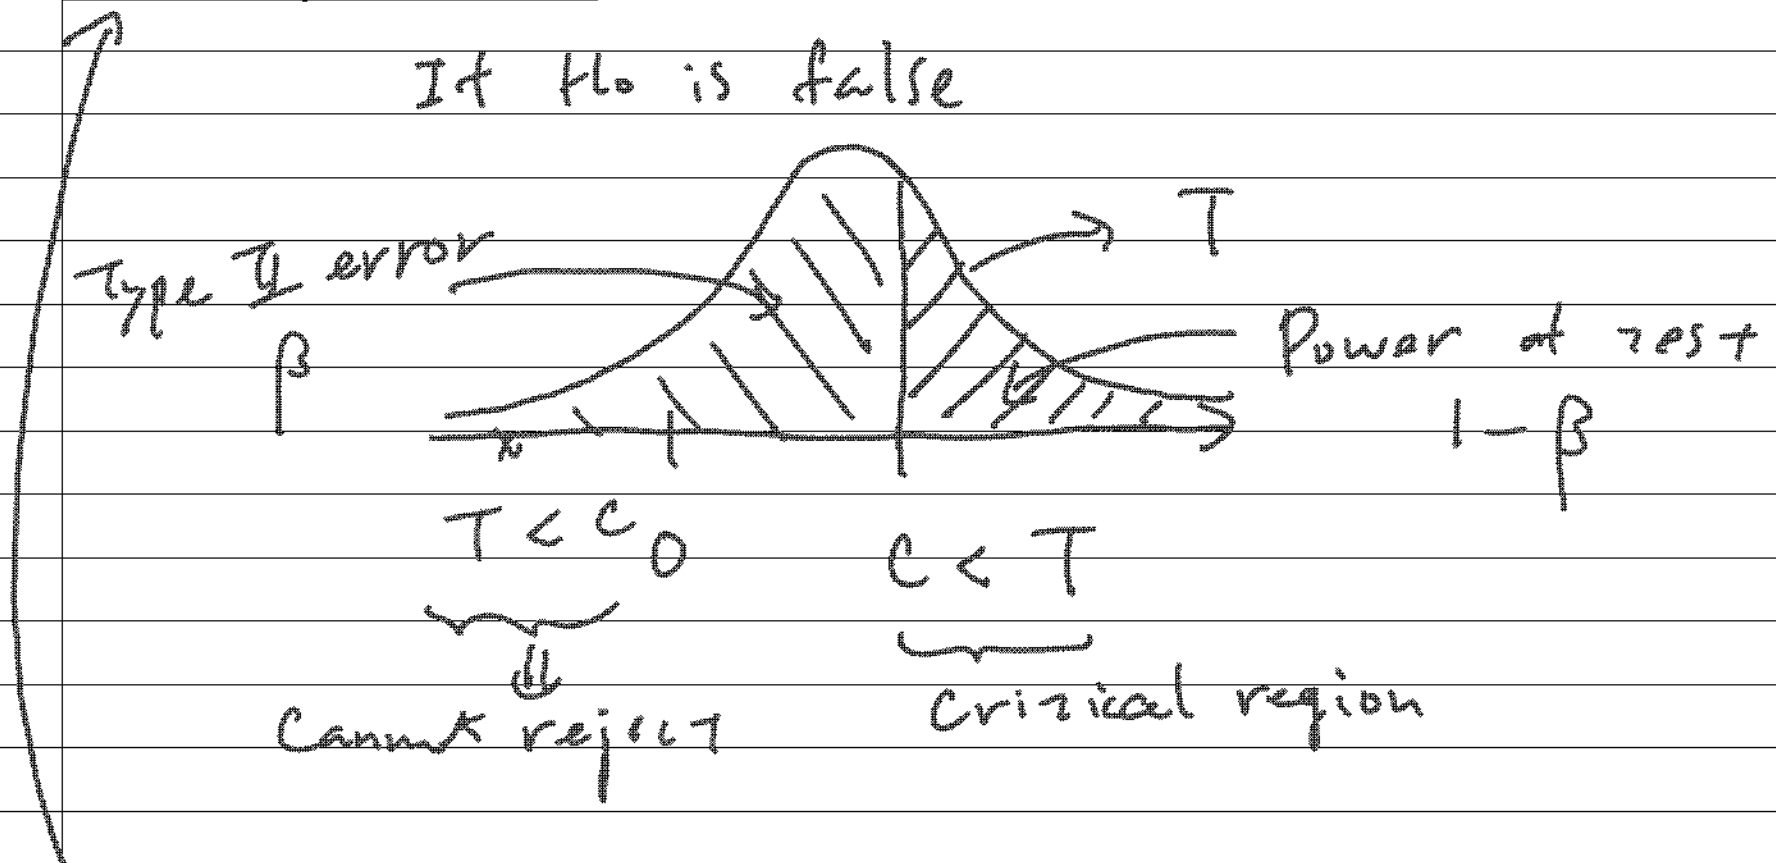 If H₀ is false
T
Type II error
Power of test
β
1 - β
T < C
0
C < T
Cannot reject
Critical region